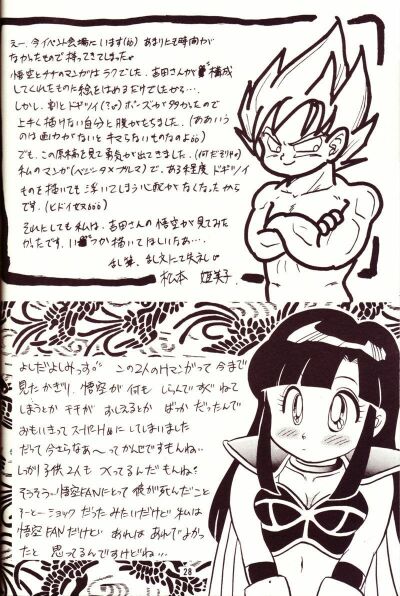 えー、今イベント会場にいます(笑) あまりにも時間が
なかったもので持ってきてしまった。
悟空とチチのマンガはラクでした。吉田さんが構成
してくれたものに絵をはめるだけでしたから…
しかし、割とドギツイ(?)ポーズが多かったので
上手く描けない自分と腹がたちました。(ああいう
のは画力がないとキマらないものなのよ)
でも、この原稿を見て勇気が出てきました。(何だそりゃ)
私のマンガ(ベジータ×ブルマ)で、ある程度ドギツイ
ものを描いても浮いてしまう心配がなくなったから
です。(ヒドイセリ
それにしても私は、吉田さんの悟空が見てみた
かったです。いつか描いてほしいなあ…
乱筆、乱文にて失礼
松本
よしだよしみっす。この2人のHマンガって今まで
見たかぎり、悟空が何もしらんですぐねて
しまうとかチチがおしえるとかばっかだったんで
おもいきってスーパーHにしてしまいました
だって今さらなあ〜ってかんじですもんね。
しっかり子供2人もつくってるんだもんね?
そうそう、悟空FANにとって彼が死んだこと
すーごーくショックだったみたいだけど私は
悟空FANだけどあれはあれでよかっ
たと思ってるんですけどね…
28